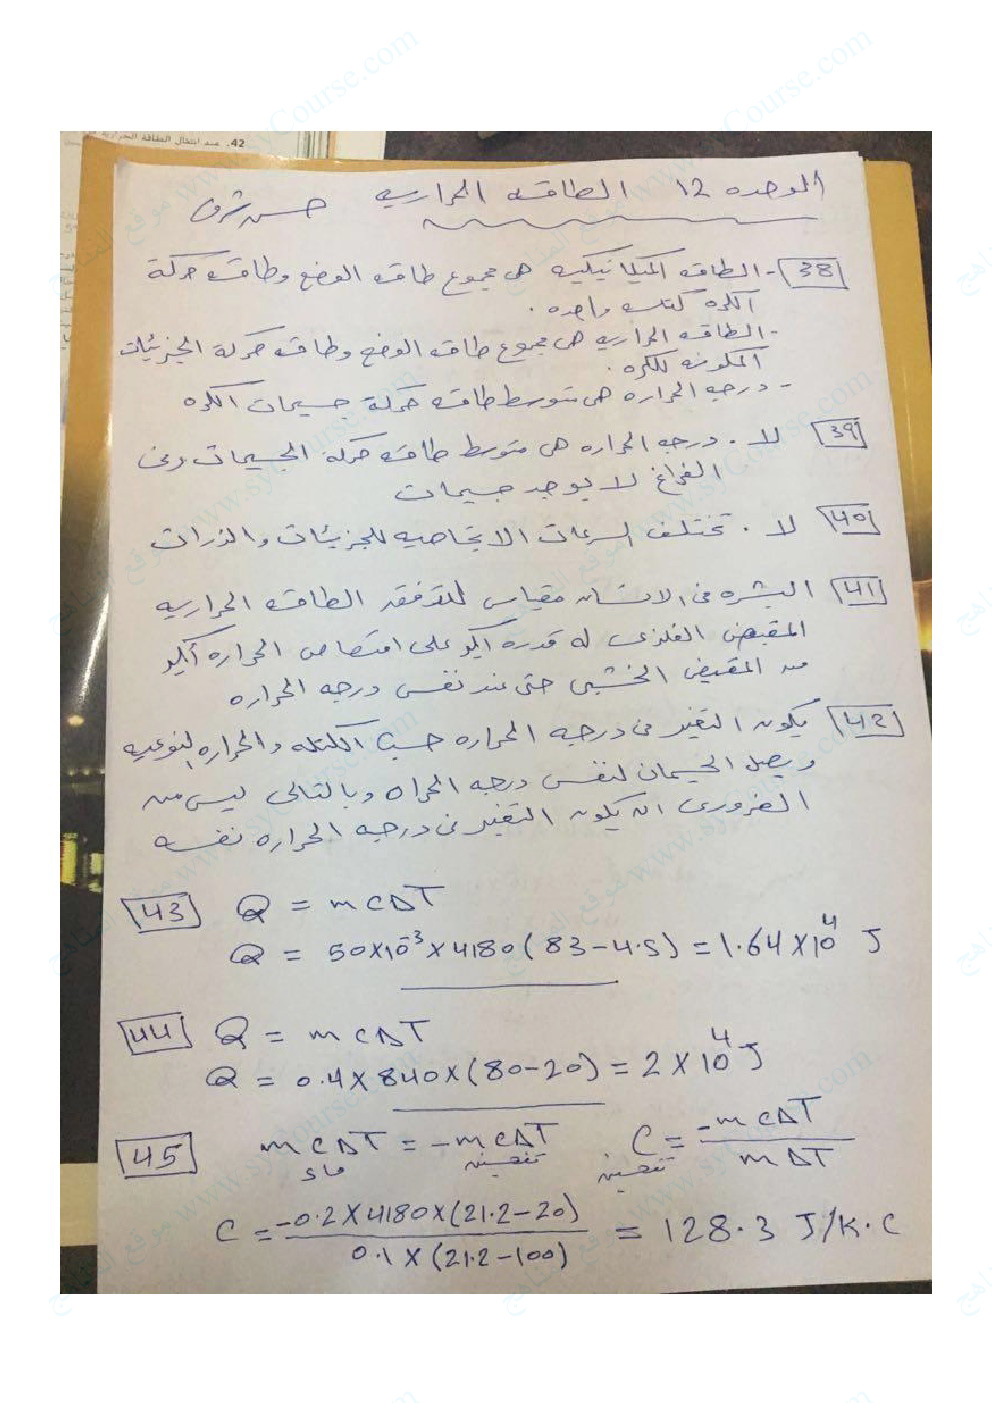 42. عند انتقال الطاقة الحرارية
الوحده 12 الطاقه الحراريه حسن شرف
38 - الطاقه الميكانيكيه هى مجموع طاقه الوضع وطاقه حركة
الكره كتله واحده .
- الطاقه الحراريه هى مجموع طاقه الوضع وطاقه حركة الجزيئات
المكونه للكره .
- درجه الحراره هى متوسط طاقه حركة جسيمات الكره
39 لا . درجه الحراره هى متوسط طاقه حركه الجسيمات وفى
الفراغ لا يوجد جسيمات
40 لا . تختلف السرعات الاتجاهيه للجزيئات والذرات
41 البشره فى الانسان مقياس للتدفقه الطاقه الحراريه
المقبض الفلزى له قدره اكبر على امتصاص الحراره أكبر
من المقبض الخشبى حتى عند نفس درجه الحراره
42 يكون التغير فى درجه الحراره حسب الكتله والحراره النوعيه
ويصل الجسيمان لنفس درجه الحراه وبالتالى ليس من
الضرورى ان يكون التغير فى درجه الحراره نفسه
43 Q = mCΔT
Q = 50×10⁻³×4180(83-4.5) = 1.64×10⁴ J
44 Q = mCΔT
Q = 0.4×840×(80-20) = 2×10⁴ J
45 mCΔT = -mCΔT C = -mCΔT / mΔT
ماء
C = -0.2×4180×(21.2-20) / 0.1×(21.2-100) = 128.3 J/K.C
موقع المناهج www.syCourse.com